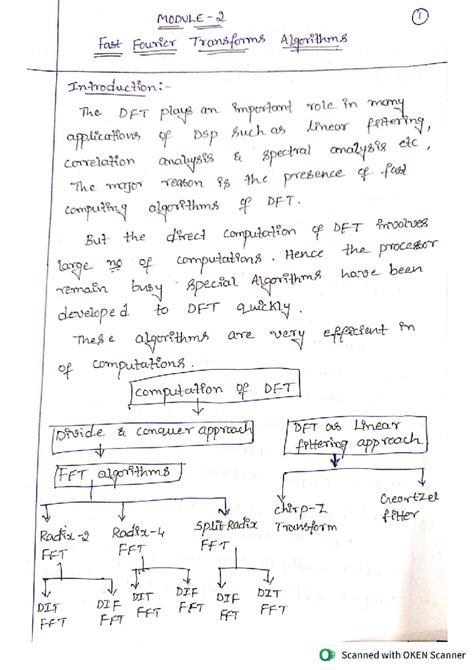 MODULE-2
1
Fast Fourier Transforms Algorithms
Introduction:-
The DFT plays an important role in many
applications of Dsp such as linear filtering,
correlation analysis & spectral analysis etc,
The major reason is the presence of fast
computing algorithms of DFT.
But the direct computation of DFT involves
large no of computations. Hence the processor
remain busy special Algorithms have been
developed to DFT quickly.
These algorithms are very efficient in
of computations.
computation of DFT
Divide & conquer approach
DFT as linear
filtering approach
FFT algorithms
Radix-2
FFT
Radix-4
FFT
Split Radix
FFT
chirp-Z
Transform
Geortzel
filter
DIT
FFT
DIF
FFT
DIT
FFT
DIF
FFT
DIF
FFT
DIT
FFT
Scanned with OKEN Scanner